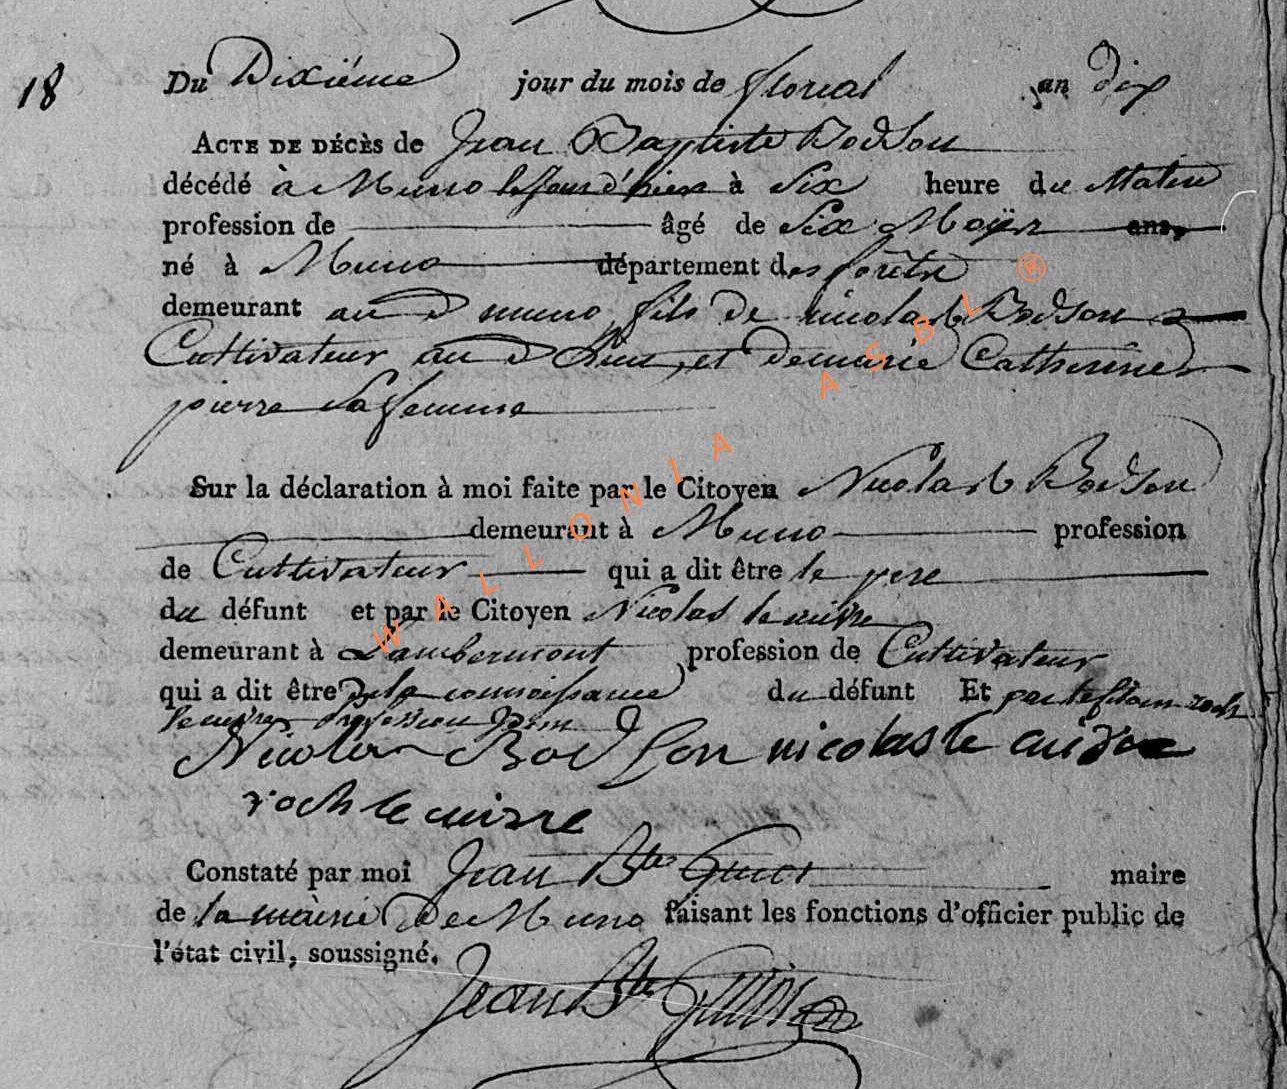 18
Du Dixiéme jour du mois de floreal an dix
ACTE DE DÉCÈS de Jean Baptiste Bodson
décédé à Muno le jour d'hier à Six heure du Matin
profession de âgé de Six Moÿs ans,
né à Muno département des forêts
demeurant au d muno fils de nicolas Bodson
Cultivateur au d Lieu, et de marie Catherine
pierre Sa femme
Sur la déclaration à moi faite par le Citoyen Nicolas Bodson
demeurant à Muno profession
de Cultivateur qui a dit être le pere
du défunt et par le Citoyen Nicolas le cuivre
demeurant à Lambermont profession de Cultivateur
qui a dit être de la connoissance du défunt Et par le Citoien roch
le cuivre profession
Nicolas Bodson nicolas le cuivre
roch le cuivre
Constaté par moi Jean Bte Guiot maire
de la mairie de Muno faisant les fonctions d'officier public de
l'état civil, soussigné.
Jean Bte Guiot
WALLONIA ASBL ®